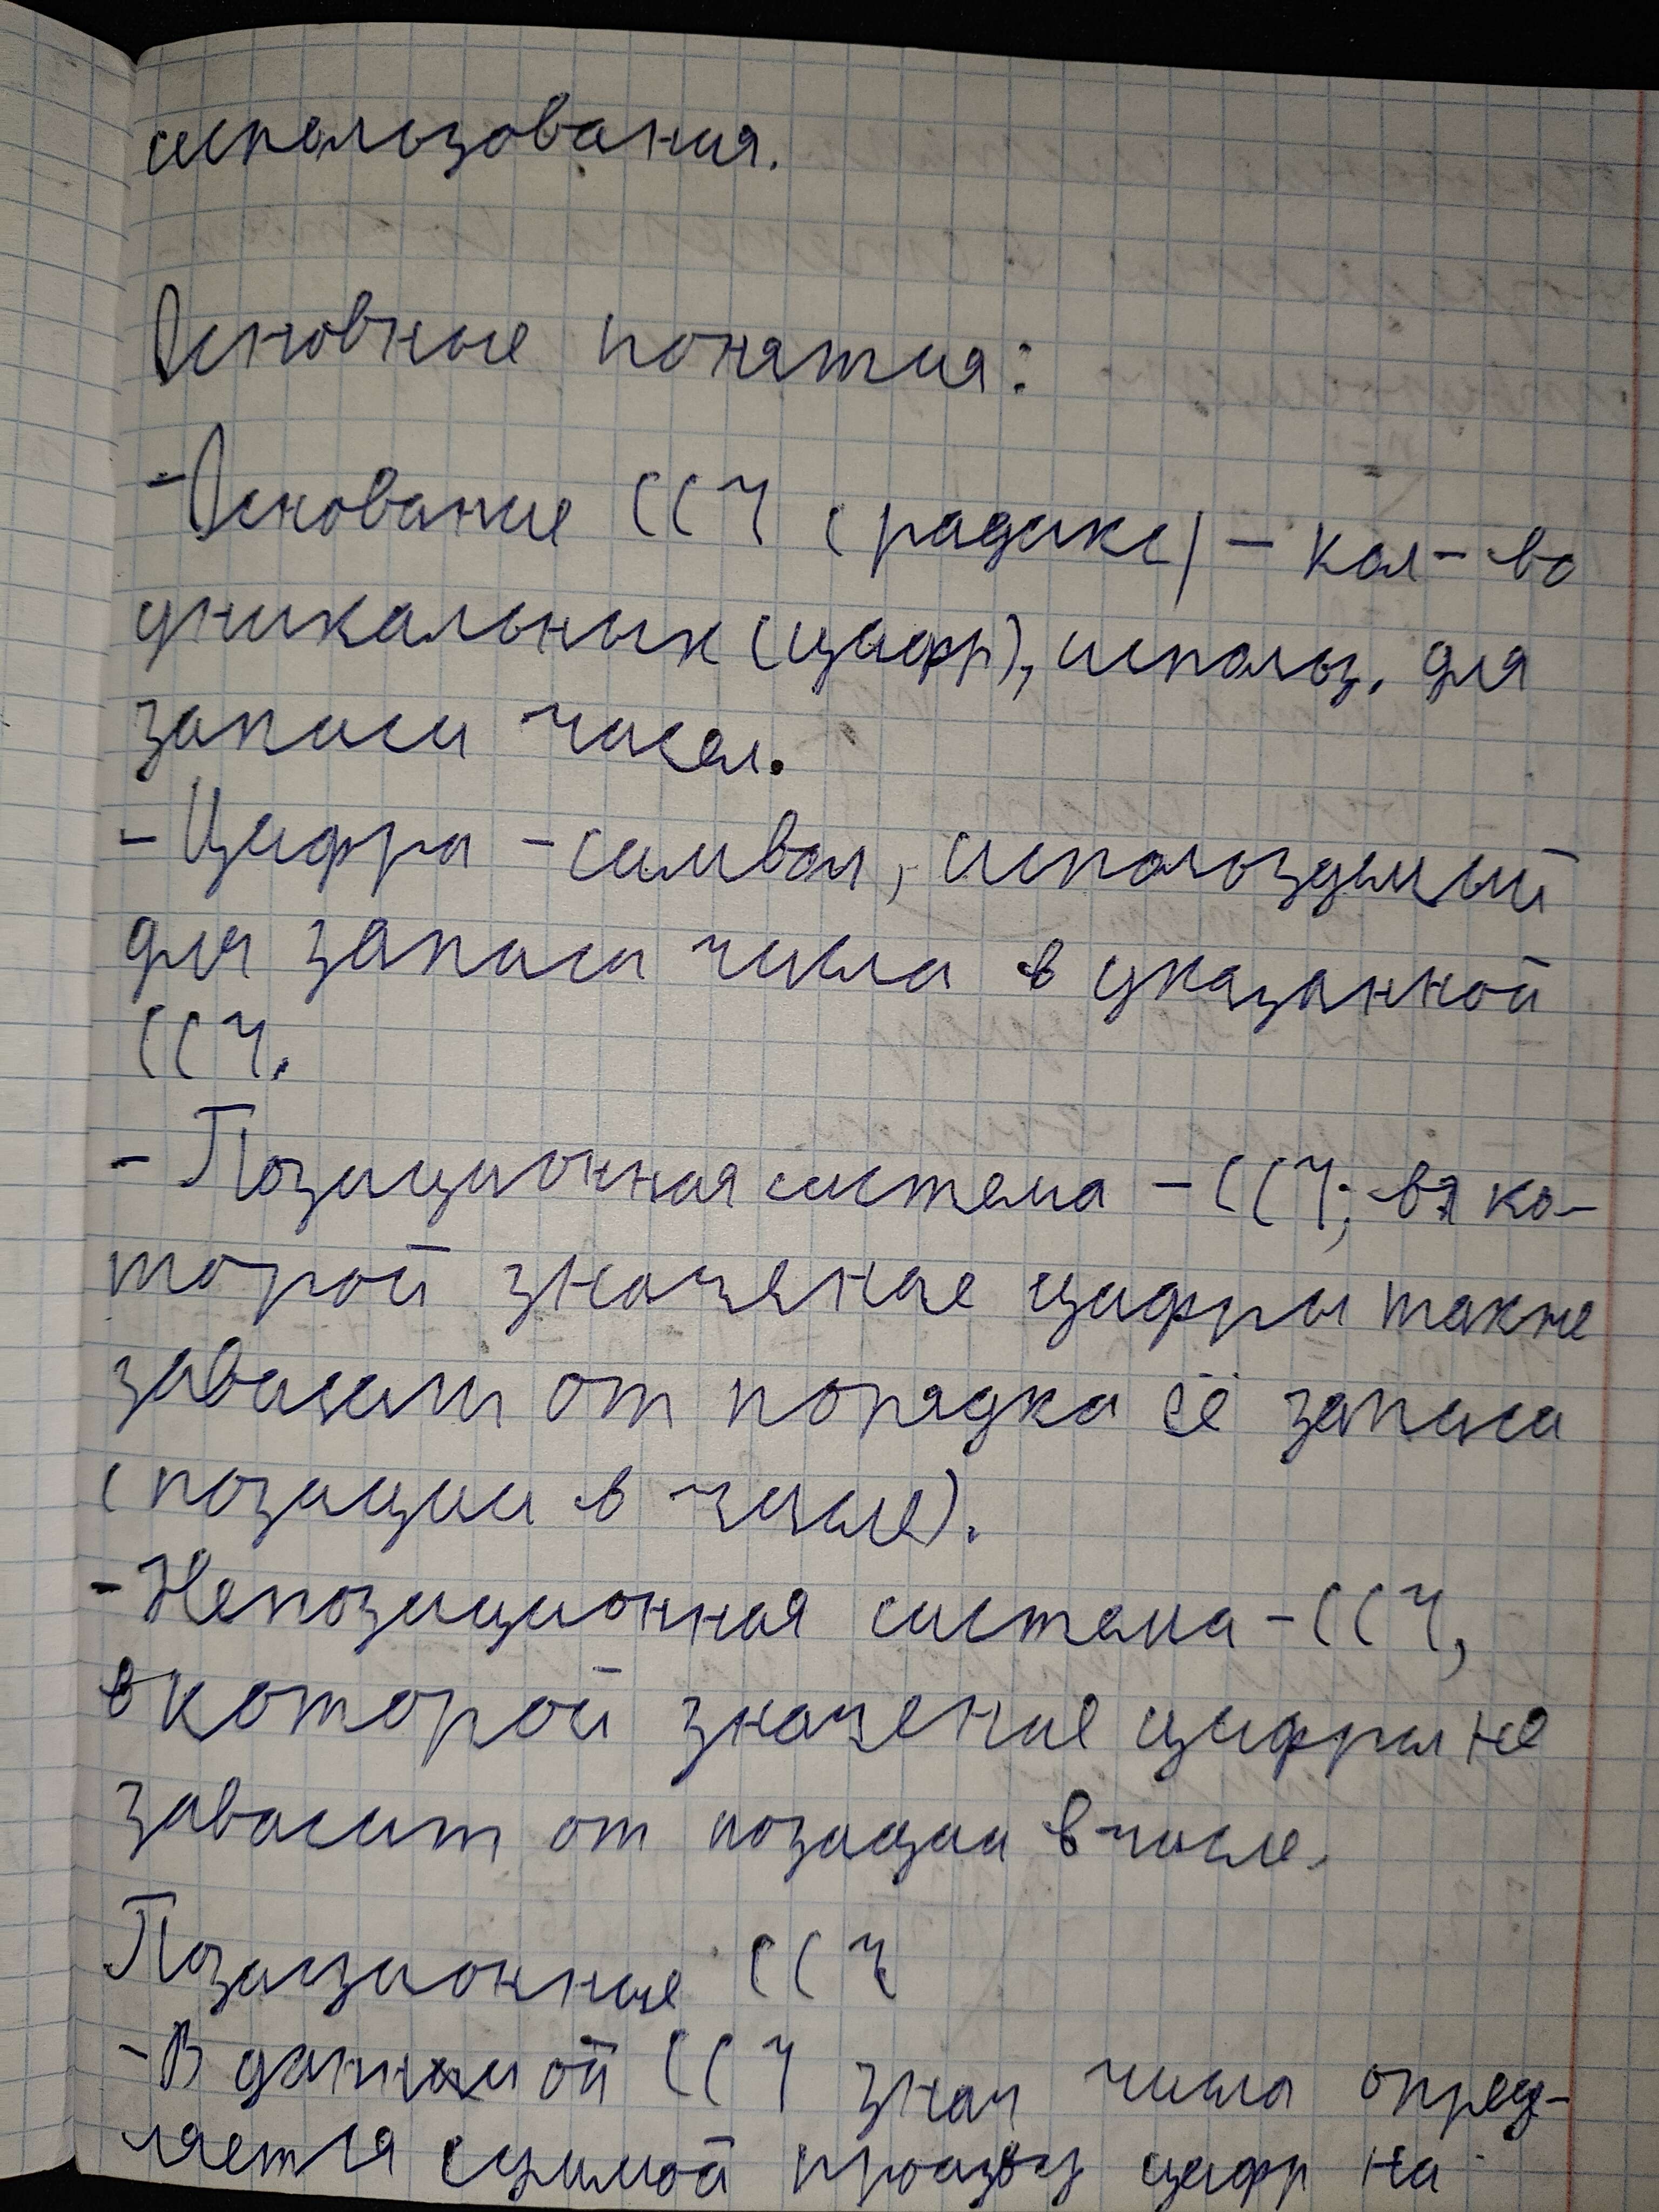 использования.
Основные понятия:
- Основание ССЧ (радикс) - кол-во
уникальных (цифр), использ. для
записи чисел.
- Цифра - символ, используемый
для записи числа в указанной
ССЧ.
- Позиционная система - ССЧ, в ко-
торой значение цифры также
зависит от порядка её записи
(позиции в числе).
- Непозиционная система - ССЧ,
в которой значение цифры не
зависит от позиции в числе.
Позиционные ССЧ
- В данной ССЧ знач числа опред-
ляется суммой произв цифр на